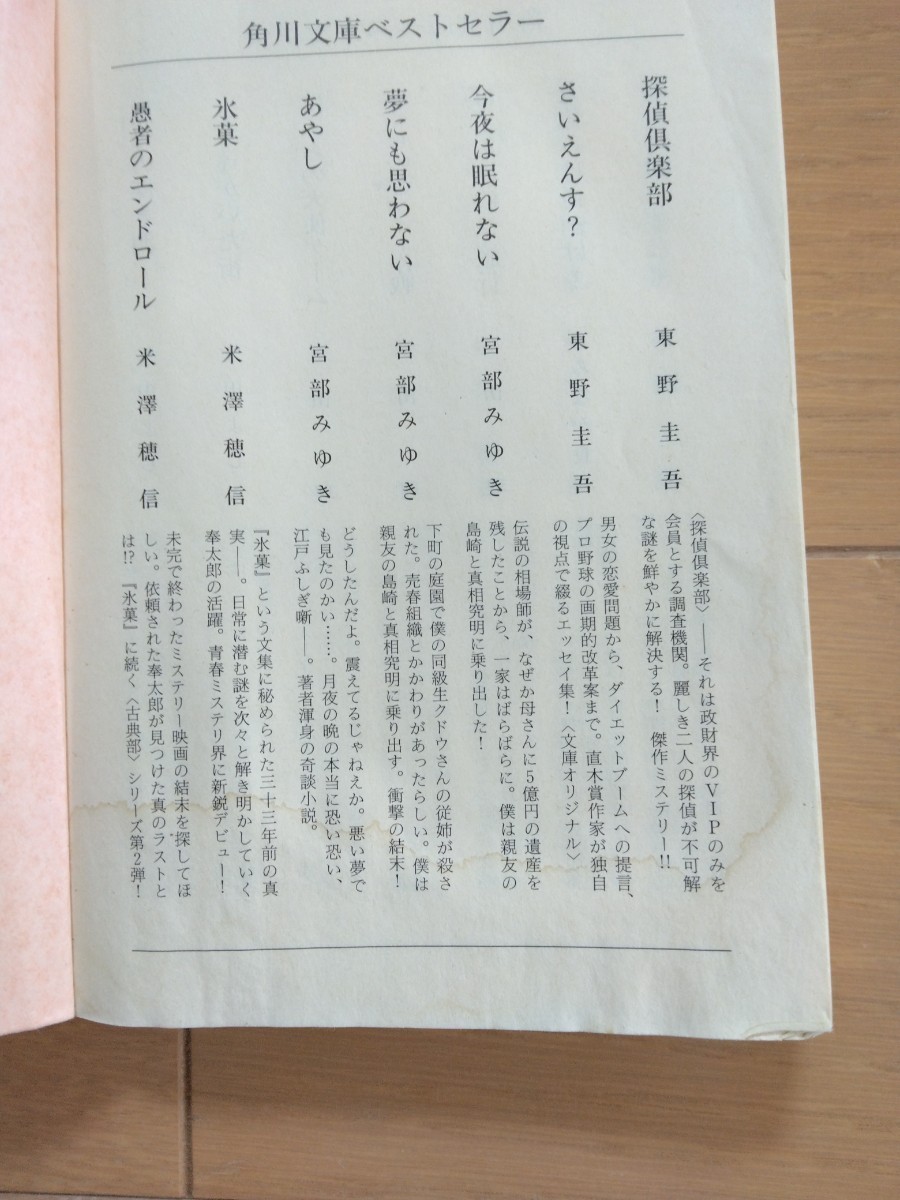 角川文庫ベストセラー
探偵倶楽部
東野圭吾
〈探偵倶楽部〉――それは政財界のVIPのみを
会員とする調査機関。麗しき二人の探偵が不可解
な謎を鮮やかに解決する！　傑作ミステリー!!
さいえんす？
東野圭吾
男女の恋愛問題から、ダイエットブームへの提言、
プロ野球の画期的改革案まで。直木賞作家が独自
の視点で綴るエッセイ集！〈文庫オリジナル〉
今夜は眠れない
宮部みゆき
伝説の相場師が、なぜか母さんに5億円の遺産を
残したことから、一家はばらばらに。僕は親友の
島崎と真相究明に乗り出した！
夢にも思わない
宮部みゆき
下町の庭園で僕の同級生クドウさんの従姉が殺さ
れた。売春組織とかかわりがあったらしい。僕は
親友の島崎と真相究明に乗り出す。衝撃の結末！
あやし
宮部みゆき
どうしたんだよ。震えてるじゃねえか。悪い夢で
も見たのかい……。月夜の晩の本当に恐い恐い、
江戸ふしぎ噺――。著者渾身の奇談小説。
氷菓
米澤穂信
『氷菓』という文集に秘められた三十三年前の真
実――。日常に潜む謎を次々と解き明かしていく
奉太郎の活躍。青春ミステリ界に新鋭デビュー！
愚者のエンドロール
米澤穂信
未完で終わったミステリー映画の結末を探してほ
しい。依頼された奉太郎が見つけた真のラストと
は!?『氷菓』に続く〈古典部〉シリーズ第2弾！